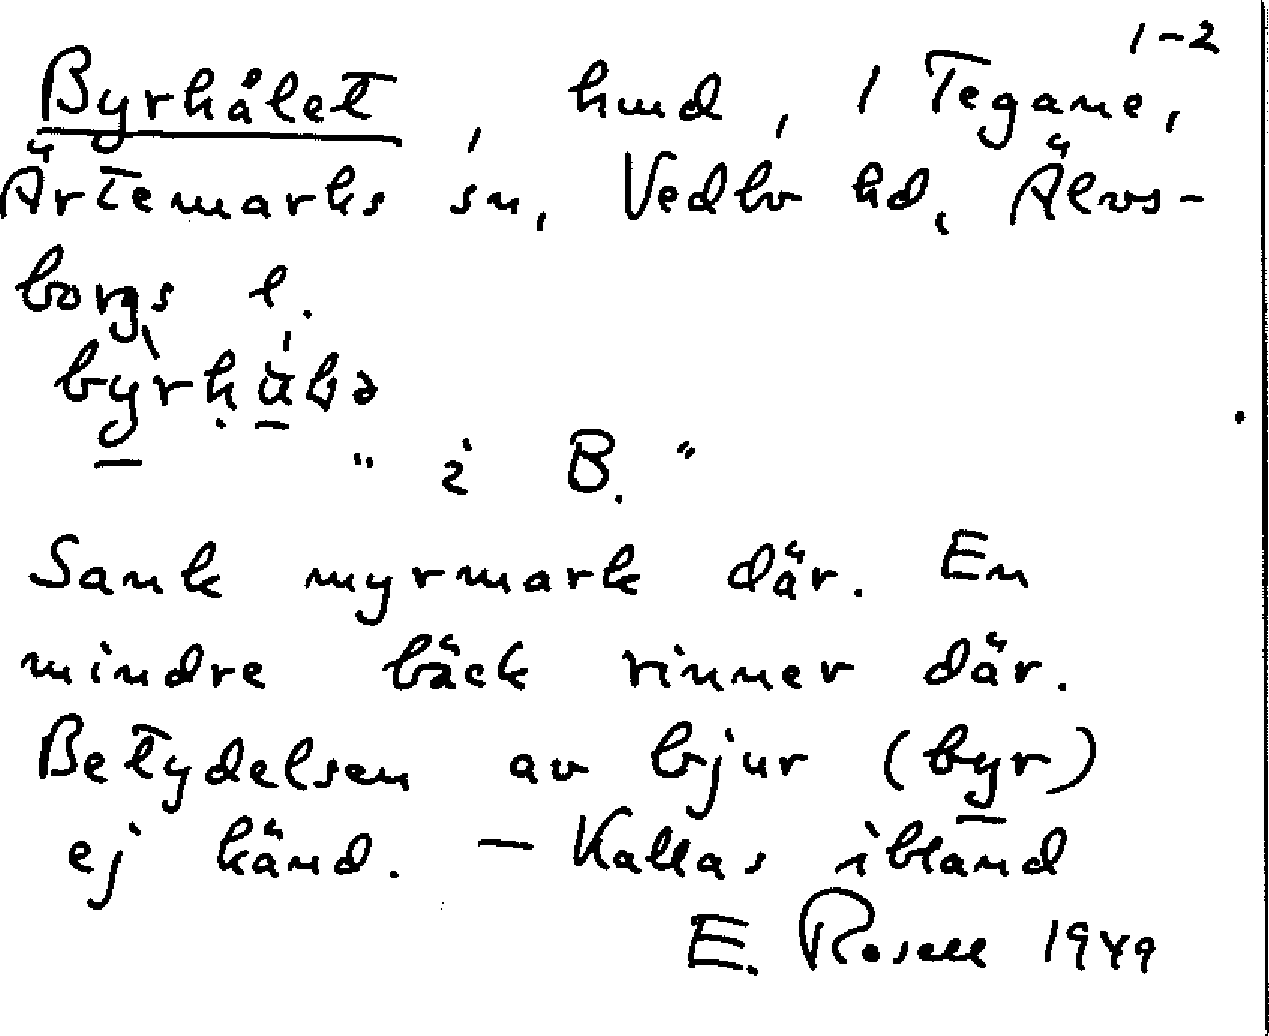 1-2
Byrhålet, hmd, 1 Tegane,
Ärtemarks sn, Vedbo hd, Älvs-
borgs l.
"i B."
Sank myrmark där. En
mindre bäck rinner där.
Betydelsen av bjur (byr)
ej känd. — Kallas ibland
E. Rosell 1949